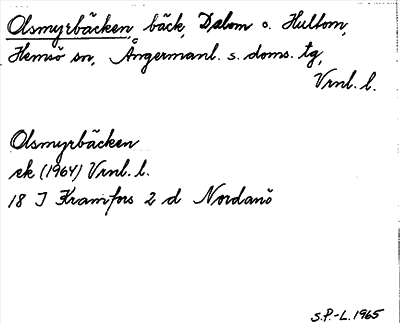 Olsmyrbäcken, bäck, Dalom o. Hultom,
Hemsö sn, Ångermanl. s. doms. tg,
Vrnl. l.
Olsmyrbäcken
ek (1964) Vrnl. l.
18 I Kramfors 2 d Nordanö
S.P.-L. 1965